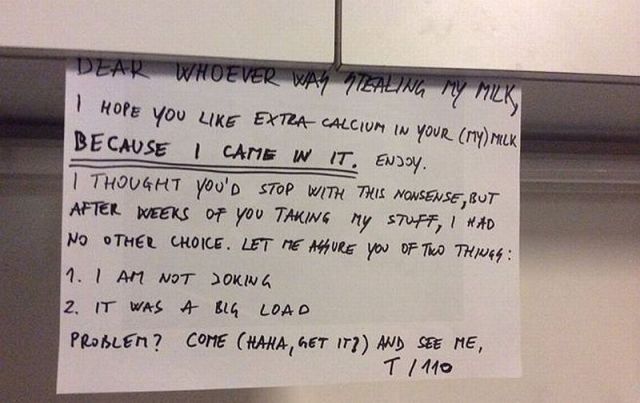 DEAR WHOEVER WAS STEALING MY MILK,
I HOPE YOU LIKE EXTRA CALCIUM IN YOUR (MY) MILK
BECAUSE I CAME IN IT. ENJOY.
I THOUGHT YOU'D STOP WITH THIS NONSENSE, BUT
AFTER WEEKS OF YOU TAKING MY STUFF, I HAD
NO OTHER CHOICE. LET ME ASSURE YOU OF TWO THINGS:
1. I AM NOT JOKING
2. IT WAS A BIG LOAD
PROBLEM? COME (HAHA, GET IT?) AND SEE ME,
T/110